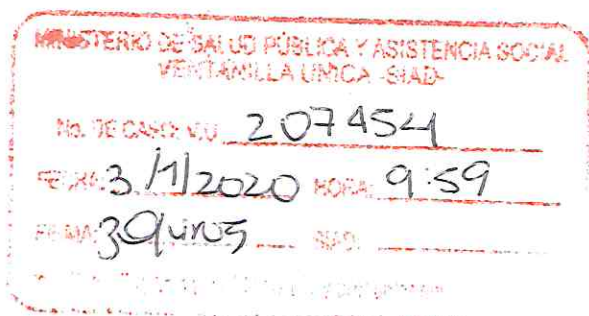 MINISTERIO DE SALUD PÚBLICA Y ASISTENCIA SOCIAL
VENTANILLA UNICA -SIAD-
No. DE CASO: V.U. 207454
FECHA: 3/1/2020 HORA: 9:59
FIRMA: SIAD: